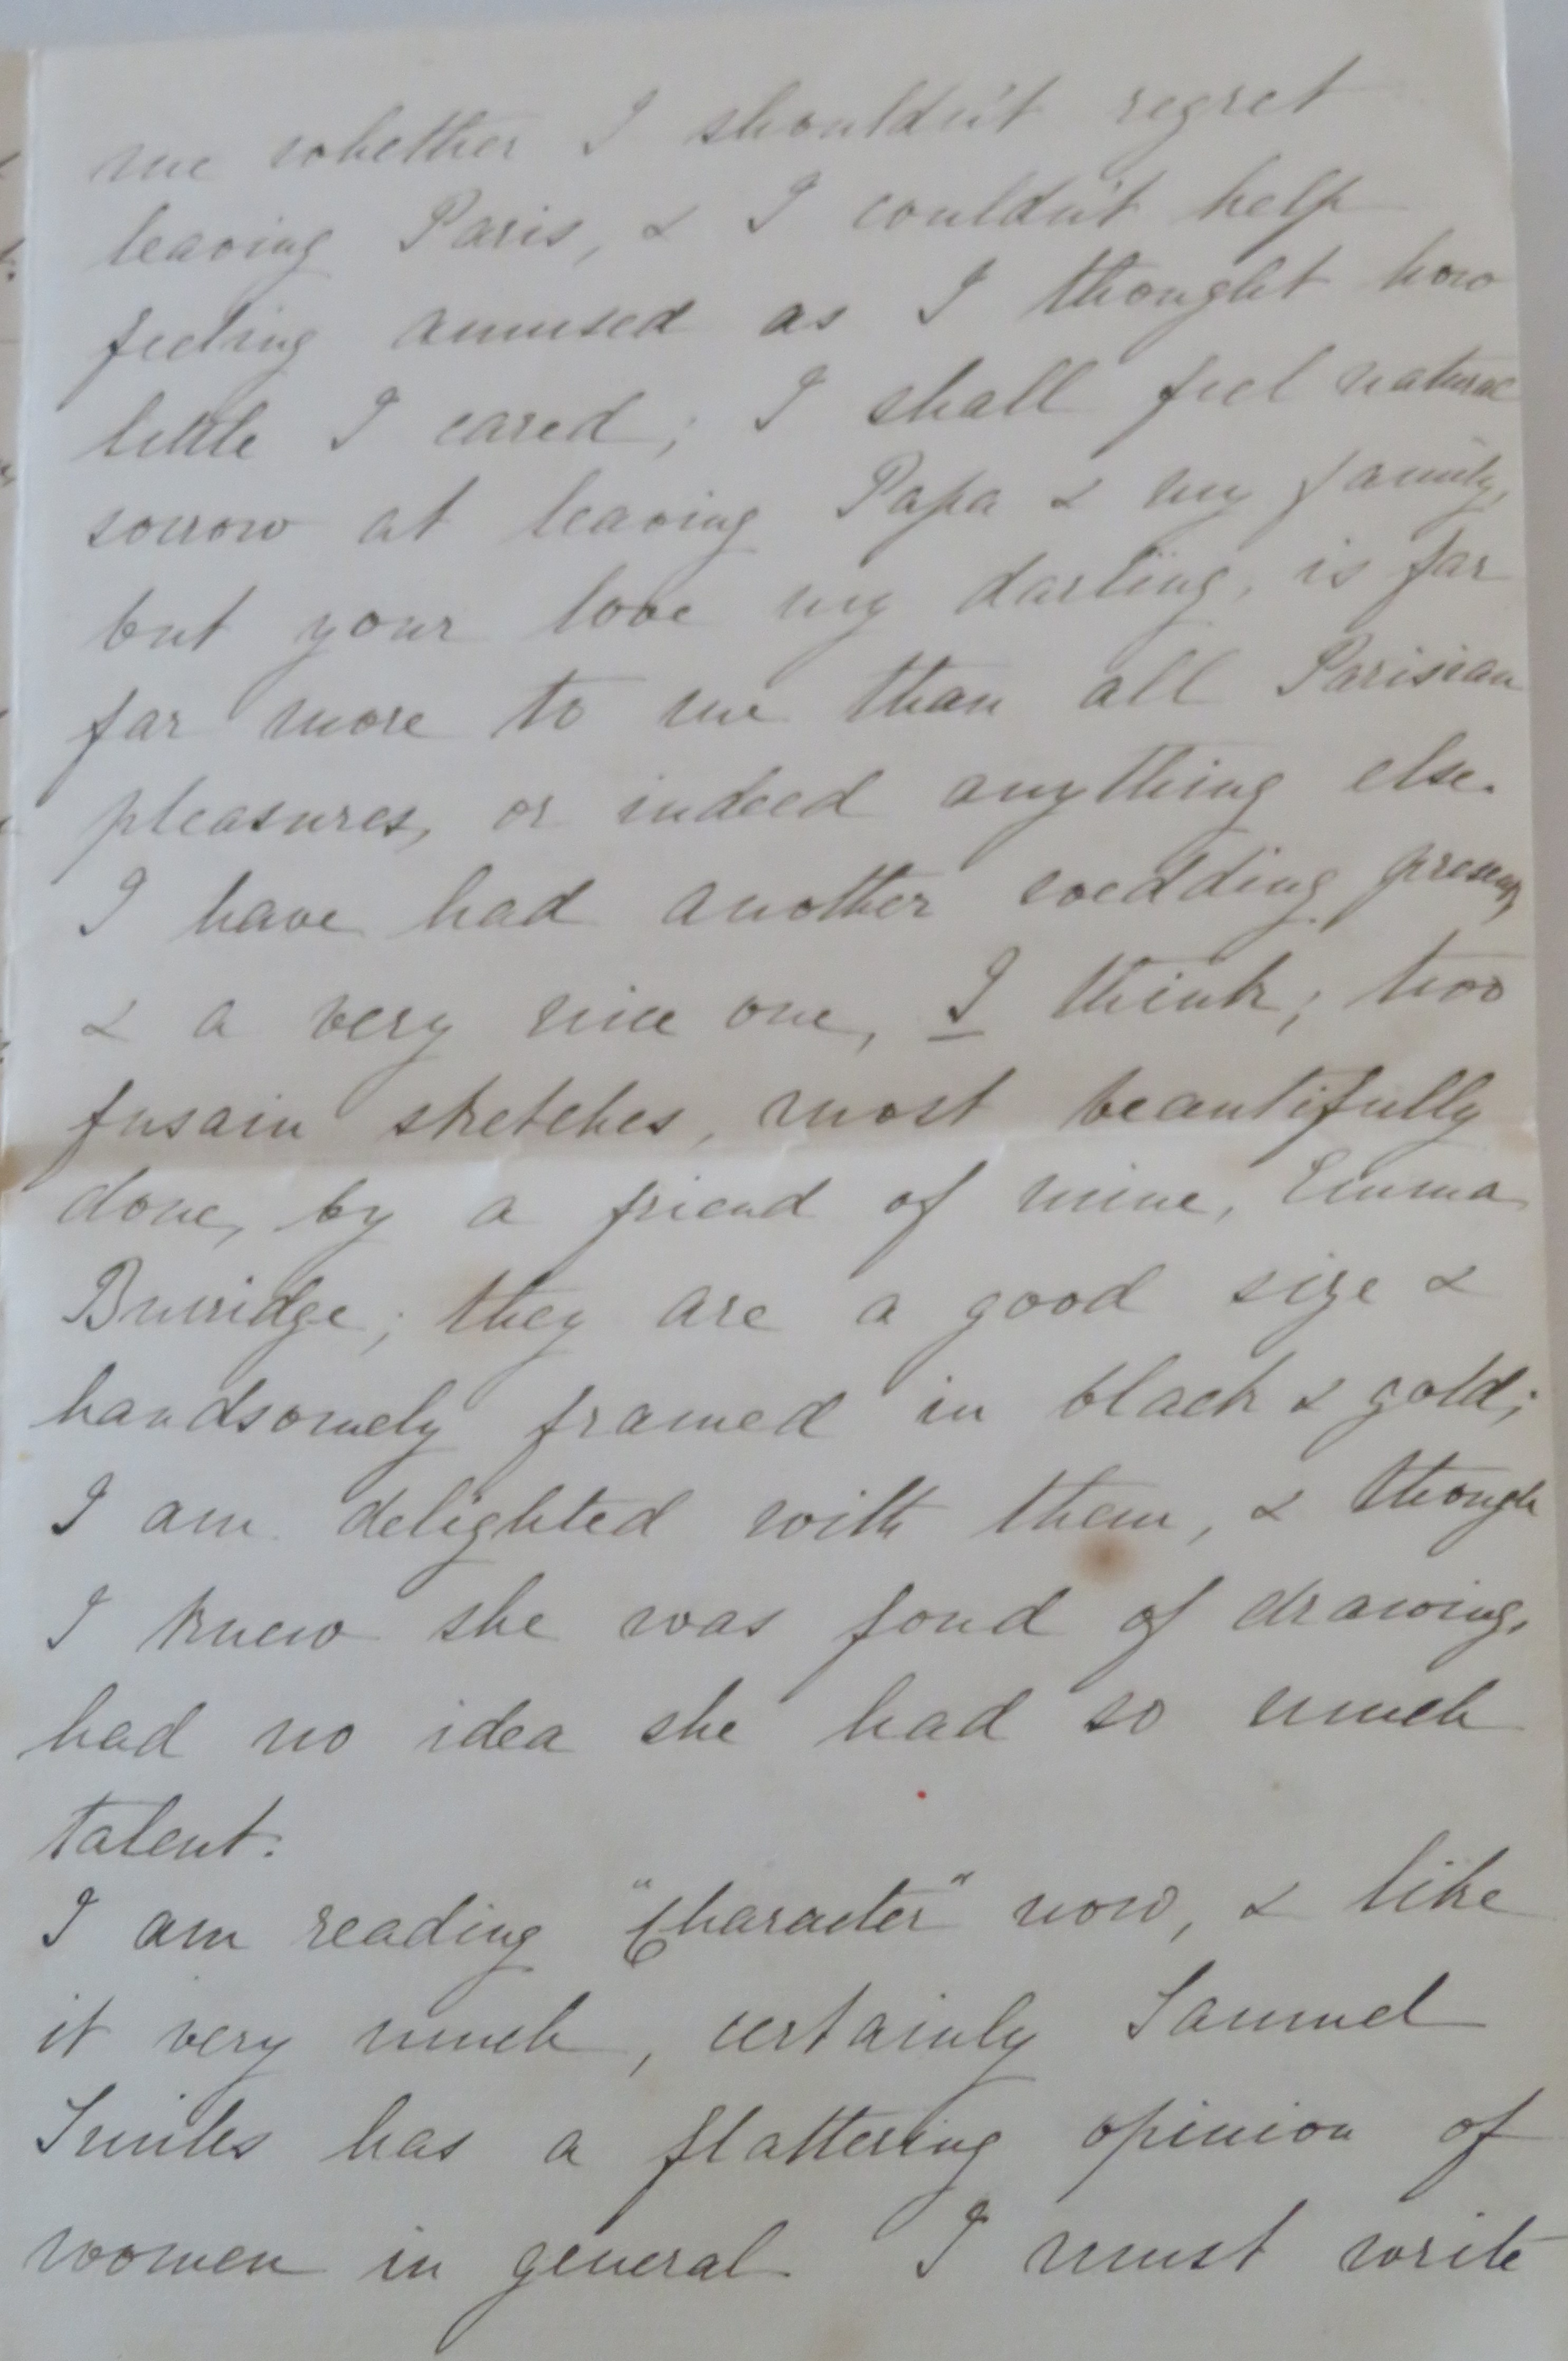 me whether I shouldn't regret
leaving Paris, & I couldn't help
feeling amused as I thought how
little I cared; I shall feel natural
sorrow at leaving Papa & my family,
but your love my darling, is far
far more to me than all Parisian
pleasures, or indeed anything else.
I have had another wedding present,
& a very nice one, I think; two
fusain sketches, most beautifully
done, by a friend of mine, Emma
Burridge; they are a good size &
handsomely framed in black & gold;
I am delighted with them, & though
I knew she was fond of drawing,
had no idea she had so much
talent.
I am reading "Character" now, & like
it very much, certainly Samuel
Smiles has a flattering opinion of
women in general. I must write